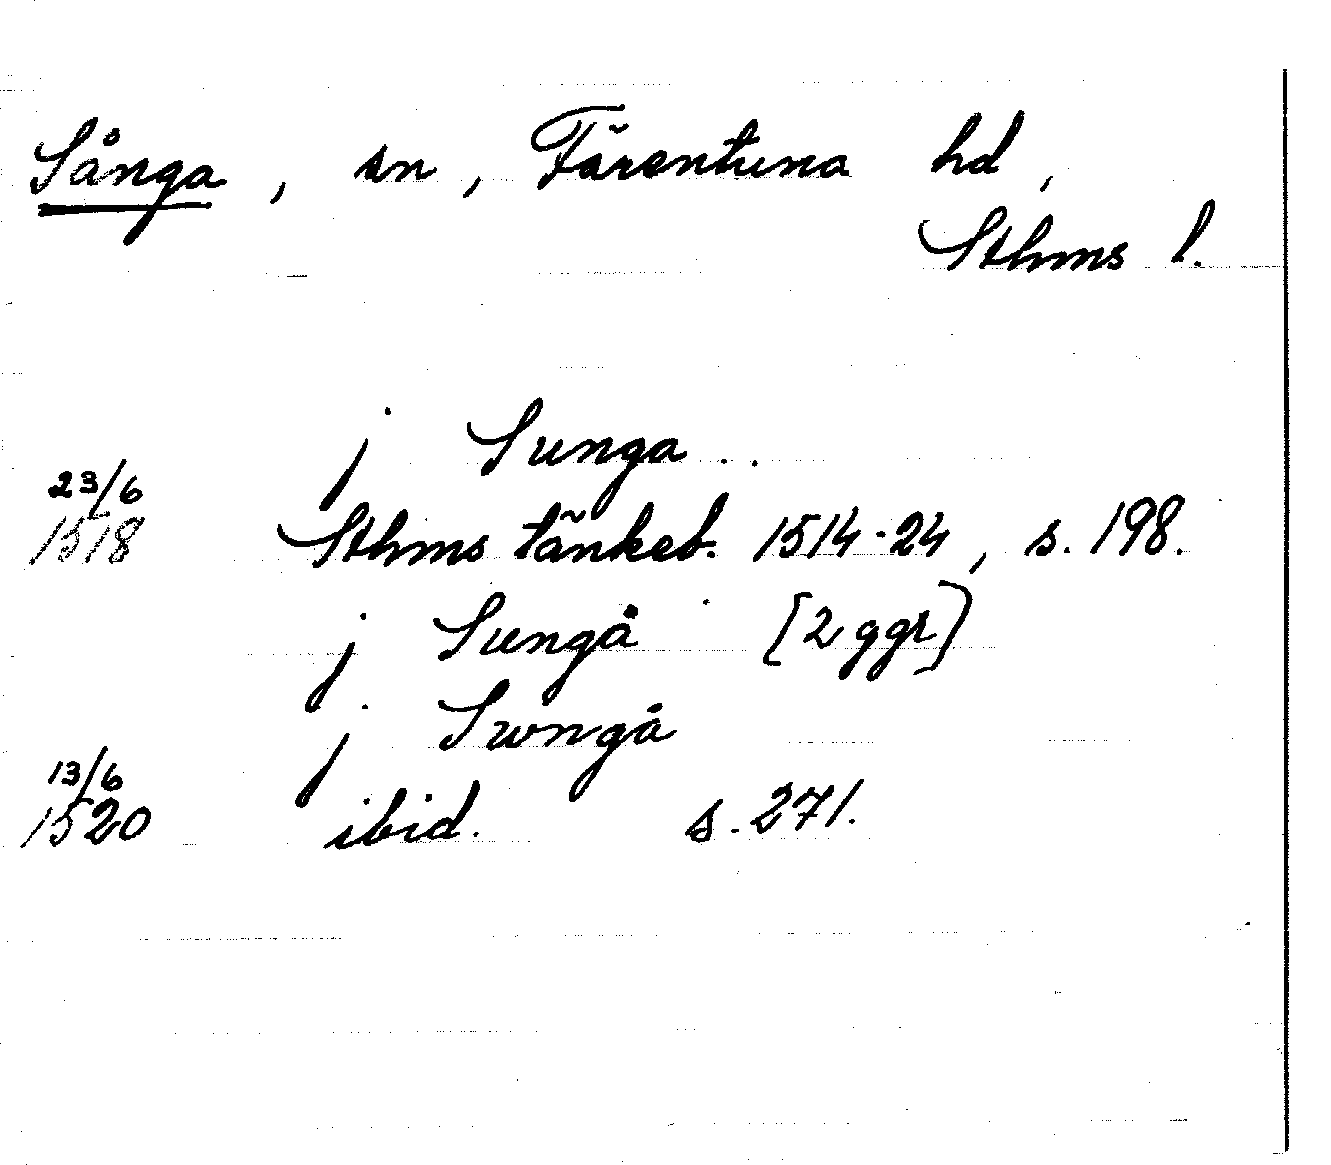 Sånga, sn, Färentuna hd,
Sthms l.
j Sunga . .
23/6
1518 Sthms tänkeb. 1514-24, s. 198.
j Sungå [2 ggr]
j Swngå
13/6
1520 ibid. s. 271.